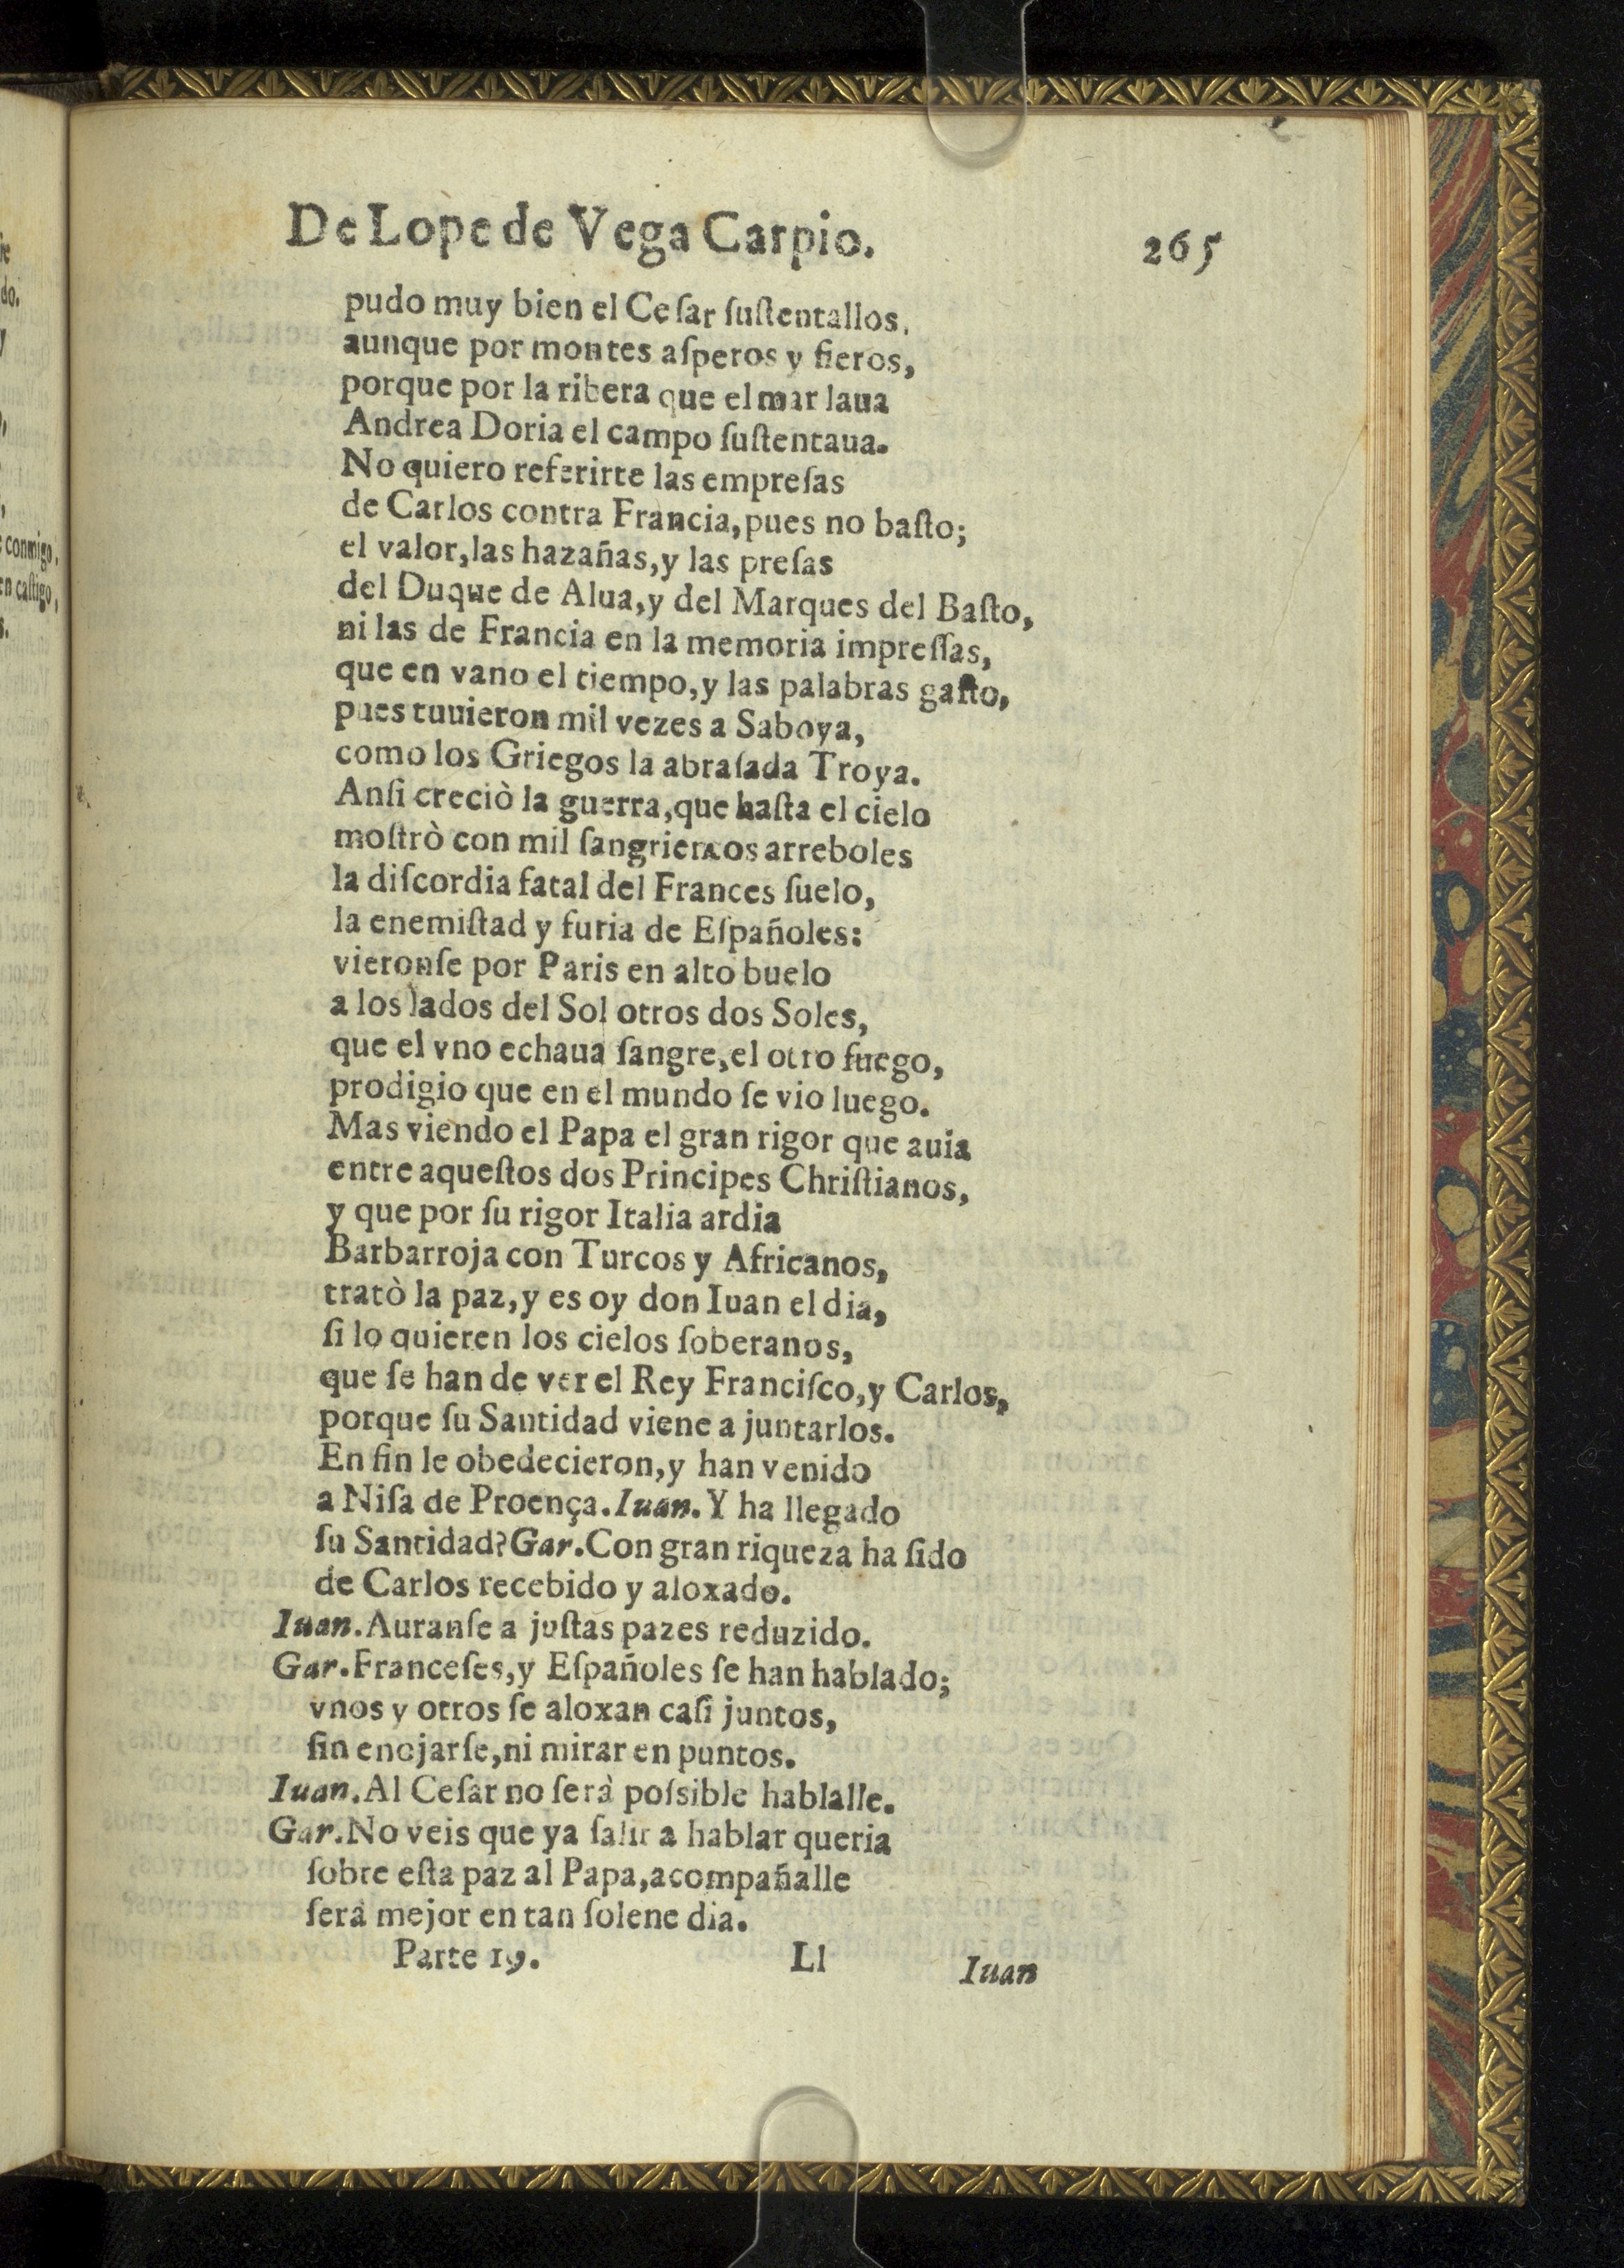 De Lope de Vega Carpio. 265
pudo muy bien el Ceſar ſuſtentallos,
aunque por montes aſperos y fieros,
porque por la ribera que el mar laua
Andrea Doria el campo ſuſtentaua.
No quiero referirte las empreſas
de Carlos contra Francia, pues no baſto;
el valor, las hazañas, y las preſas
del Duque de Alua, y del Marques del Baſto,
ni las de Francia en la memoria impreſſas,
que en vano el tiempo, y las palabras gaſto,
pues tuuieron mil vezes a Saboya,
como los Griegos la abraſada Troya.
Anſi creciò la guerra, que haſta el cielo
moſtrò con mil ſangrientos arreboles
la diſcordia fatal del Frances ſuelo,
la enemiſtad y furia de Eſpañoles:
vieronſe por Paris en alto buelo
a los lados del Sol otros dos Soles,
que el vno echaua ſangre, el otro fuego,
prodigio que en el mundo ſe vio luego.
Mas viendo el Papa el gran rigor que auia
entre aqueſtos dos Principes Chriſtianos,
y que por ſu rigor Italia ardia
Barbarroja con Turcos y Africanos,
tratò la paz, y es oy don Iuan el dia,
ſi lo quieren los cielos ſoberanos,
que ſe han de ver el Rey Franciſco, y Carlos,
porque ſu Santidad viene a juntarlos.
En fin le obedecieron, y han venido
a Niſa de Proença. Iuan. Y ha llegado
ſu Santidad? Gar. Con gran riqueza ha ſido
de Carlos recebido y aloxado.
Iuan. Auranſe a juſtas pazes reduzido.
Gar. Franceſes, y Eſpañoles ſe han hablado;
vnos y otros ſe aloxan caſi juntos,
ſin enojarſe, ni mirar en puntos.
Iuan. Al Ceſar no ſerà poſsible hablalle.
Gar. No veis que ya ſalir a hablar queria
ſobre eſta paz al Papa, acompañalle
ſerà mejor en tan ſolene dia.
Parte 19. Ll Iuan